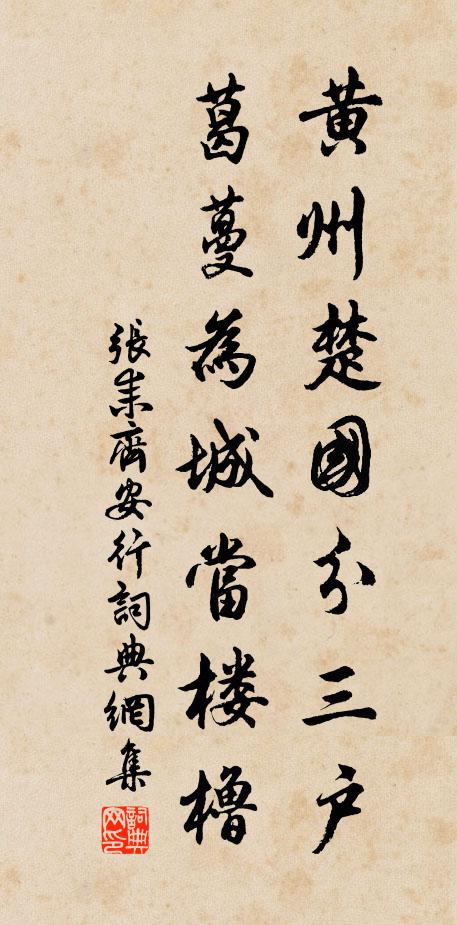 黃州楚國分三戶
葛蔓為城當楼櫓
張耒齊安行詞典網集
詞典
网印